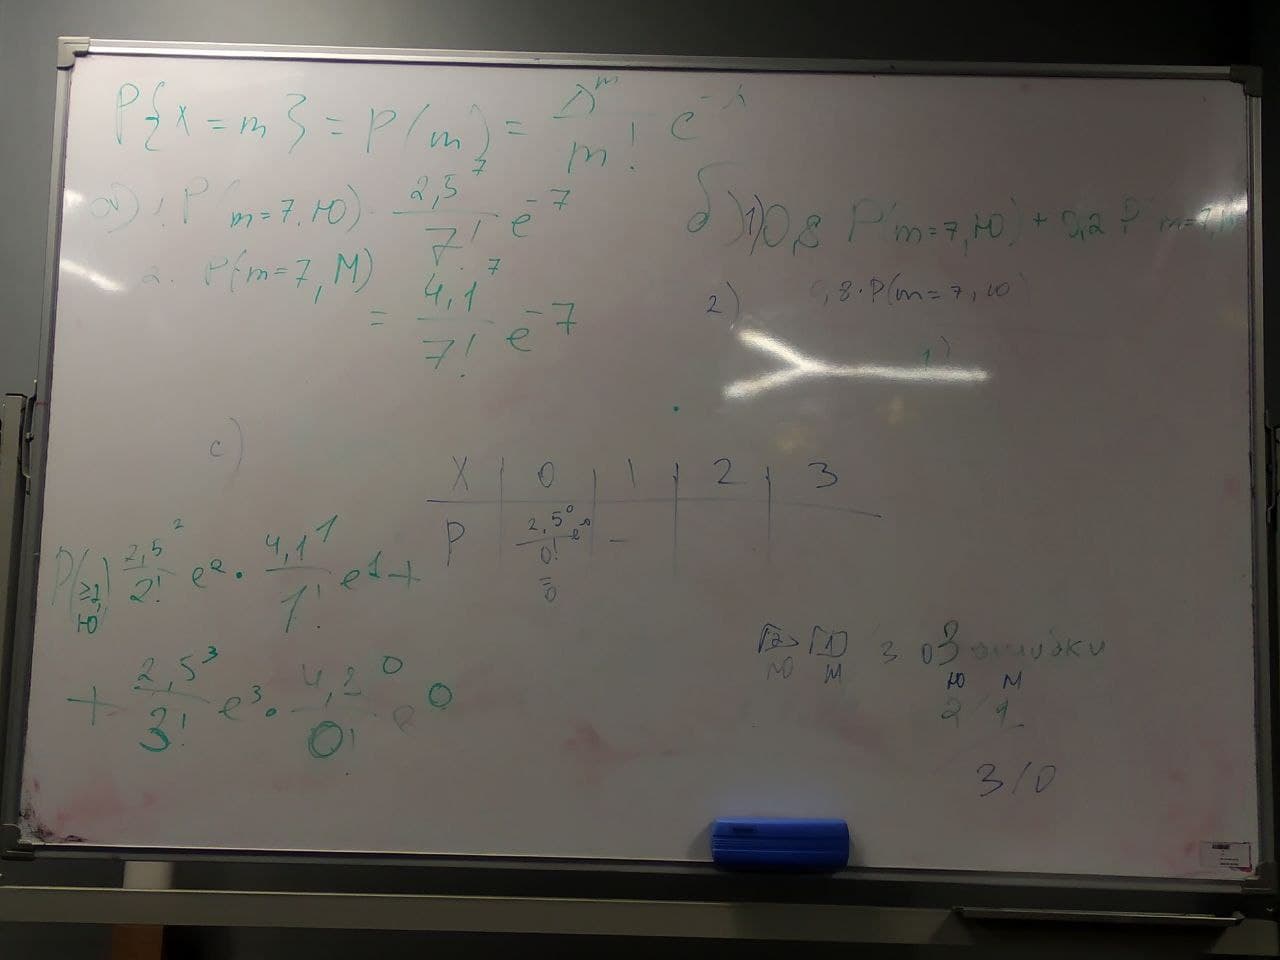 P{x = m} = P(m) = λ^m / m! e^-λ
а) 1. P(m=7, Ю) 2,5^7 / 7! e^-7
2. P(m=7, М) = 4,1^7 / 7! e^-7
б) 1) 0,8 P(m=7, Ю) + 0,2 P m=7, М
2) ,8 · P(m=7, Ю)
1)
c)
X | 0 | 1 | 2 | 3
P | 2,5^0 / 0! e^0 = 0 | –
P(≥2, Ю) 2,5^2 / 2! e^2 · 4,1^1 / 1! e^1 +
+ 2,5^3 / 3! e^3 · 4,1^0 / 0! e^0
≥2 1
Ю М
3 ошибки
Ю М
2 1
3 / 0